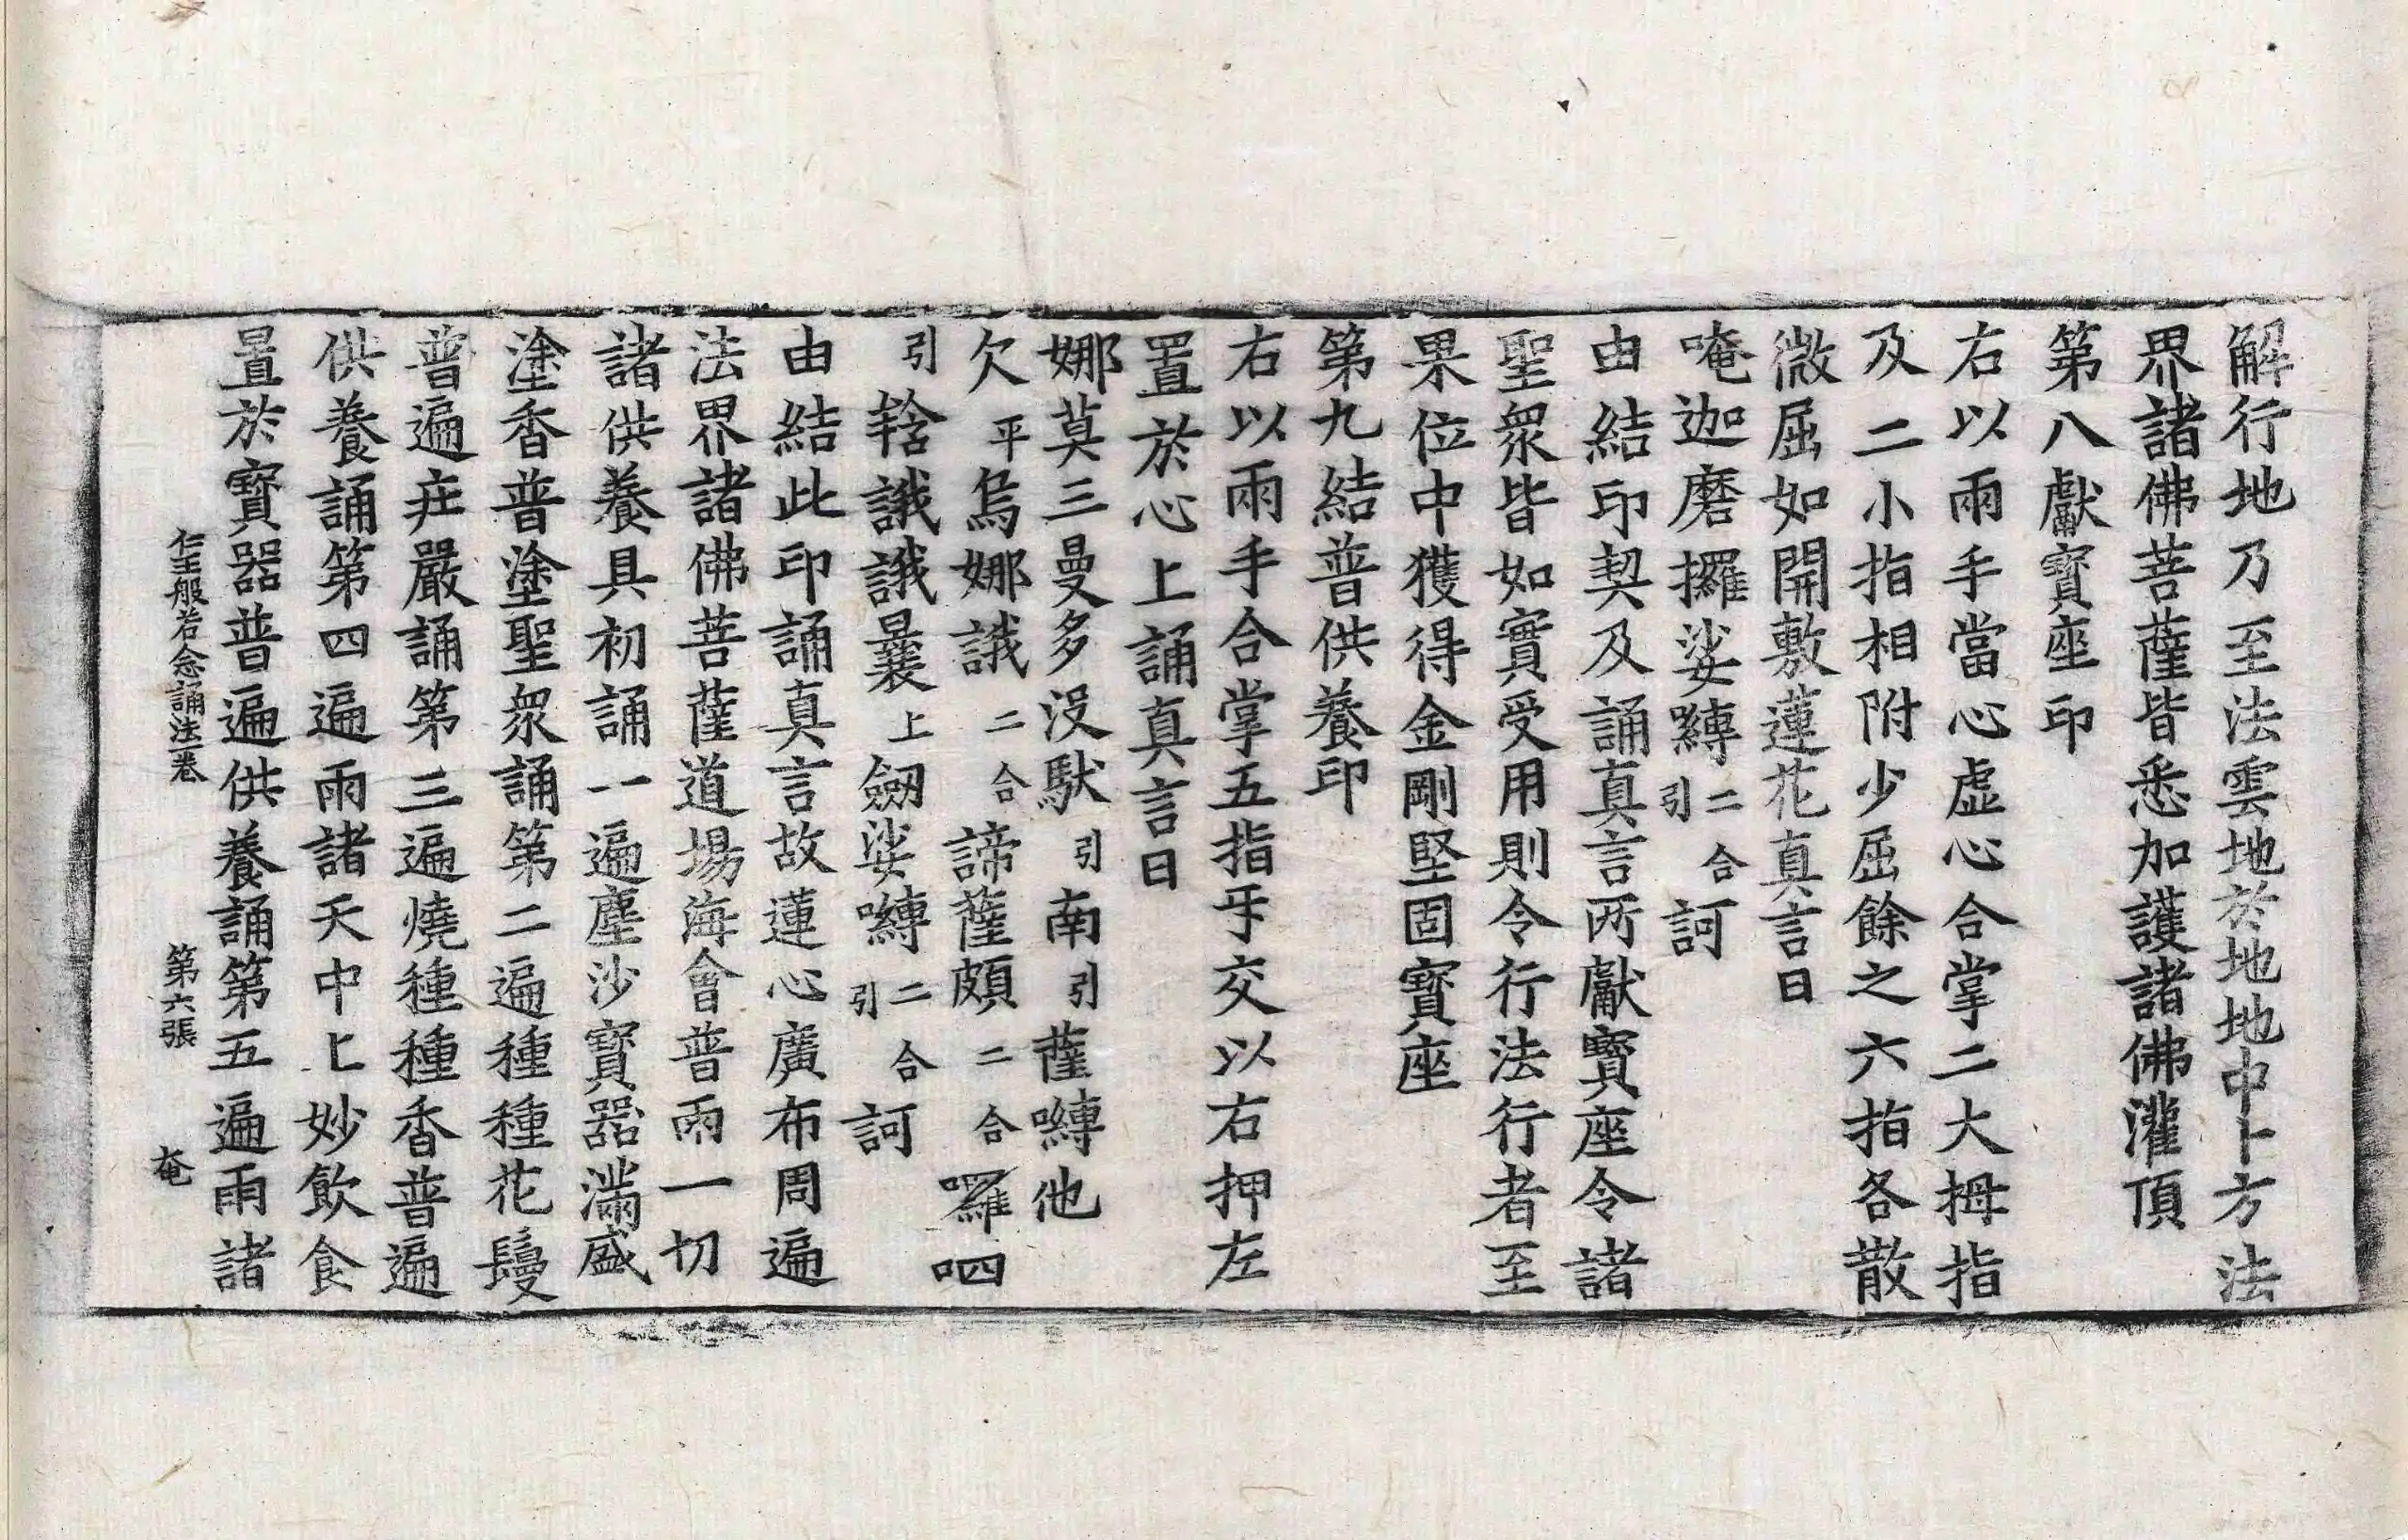 解行地乃至法雲地於地地中上方法
界諸佛菩薩皆悉加護諸佛灌頂
第八獻寶座印
右以兩手當心虛心合掌二大拇指
及二小指相附少屈餘之六指各散
微屈如開敷蓮花真言曰
唵迦磨攞娑嚩二合引訶
由結印契及誦真言所獻寶座令諸
聖衆皆如實受用則令行法行者至
果位中獲得金剛堅固寶座
第九結普供養印
右以兩手合掌五指乎交以右押左
置於心上誦真言曰
娜莫三曼多沒馱引南引薩嚩他
欠平烏娜誐二合諦薩頗二合囉呬
引𫎓誐誐曩上劔娑嚩二合引訶
由結此印誦真言故蓮心廣布周遍
法界諸佛菩薩道場海會普雨一切
諸供養具初誦一遍塵沙寶器滿盛
塗香普塗聖衆誦第二遍種種花鬘
普遍莊嚴誦第三遍燒種種香普遍
供養誦第四遍雨諸天中上妙飲食
置於寶器普遍供養誦第五遍雨諸
仁王般若念誦法一卷　第六張　奄